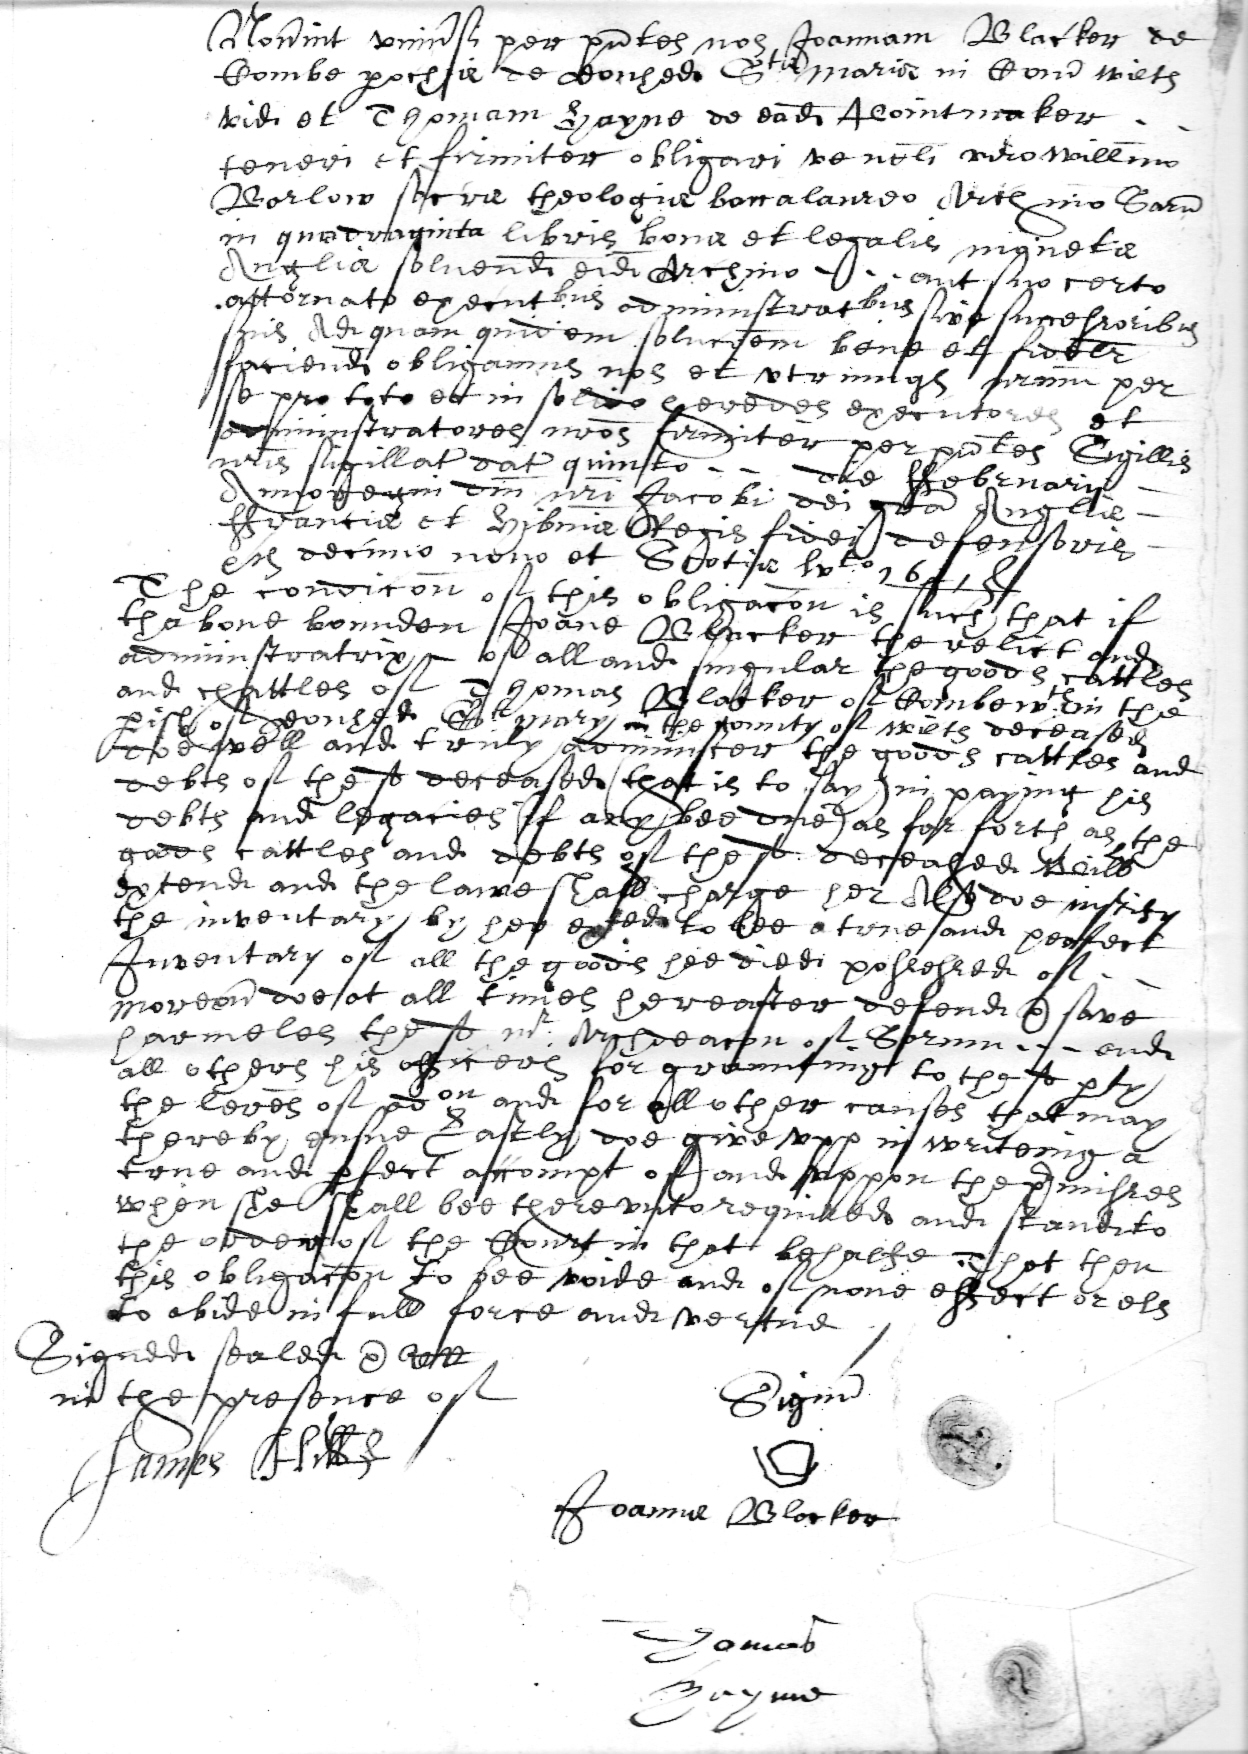 Noverint universi per pntes nos Joannam Blacker de
Combe pochiæ de Donhed Stæ Mariæ in Com Wilts
vid et Thomam Hayne de ead Cointmaker
teneri et firmiter obligari venli viro Willmo
Barlow sacræ theologiæ baccalaureo Archino Sarũ
in quadraginta libris bonæ et legalis monetæ
Angliæ solvend eid Archino - - - aut suo certo
attornato executbus administratbus sive successoribus
suis Ad quam quidem solucõem bene et fidelr
faciend obligamus nos et utrumqs nrum per
se pro toto et in solido heredes executores et
administratores nros firmiter per pntes Sigillis
nris sigillat dat quinto - - die ffebruarii -
Anno regni dni nri Jacobi dei gra Angliæ -
ffranciæ et Hibniæ Regis fidei defensoris -
etc decimo nono et Scotiæ lvto 1621
The condicõn of this obligacõn is such that if
thabove bounden Joane Blacker the relict and
administratrix of all and singular the goods cattles
and chattles of Thomas Blacker of Combe wthin the
pish of Donhed St Mary in the County of Wilts deceased
doe well and truly administer the goods cattles and
debts of the sd deceased (that is to say) in paying his
debts and legacies (if any bee due) as far forth as the
goods cattles and debts of the sd deceased will
extend and the lawe shall charge her Also doe iustify
the inventary by her exted to bee a true and perfect
Inventary of all the goods hee died possessed of - -
moreov doe at all times hereafter defend & save
harmeles the sd mr Archdeacon of Sarum - - - and
all others his officers for graunting to the sd pty
the lres of adon and for all other causes that may
thereby ensue Lastly doe give upp in writeing a
true and pfect accompt of and uppon the pmisses
when she shall bee thereunto required and stand to
the order of the Court in that behalfe That then
this obligacõn to bee voide and of none effect or els
to abide in full force and vertue
Signed sealed & dd
in the presence of
James Hill
Signũ
Joannæ Blacker
Thomas
Hayne